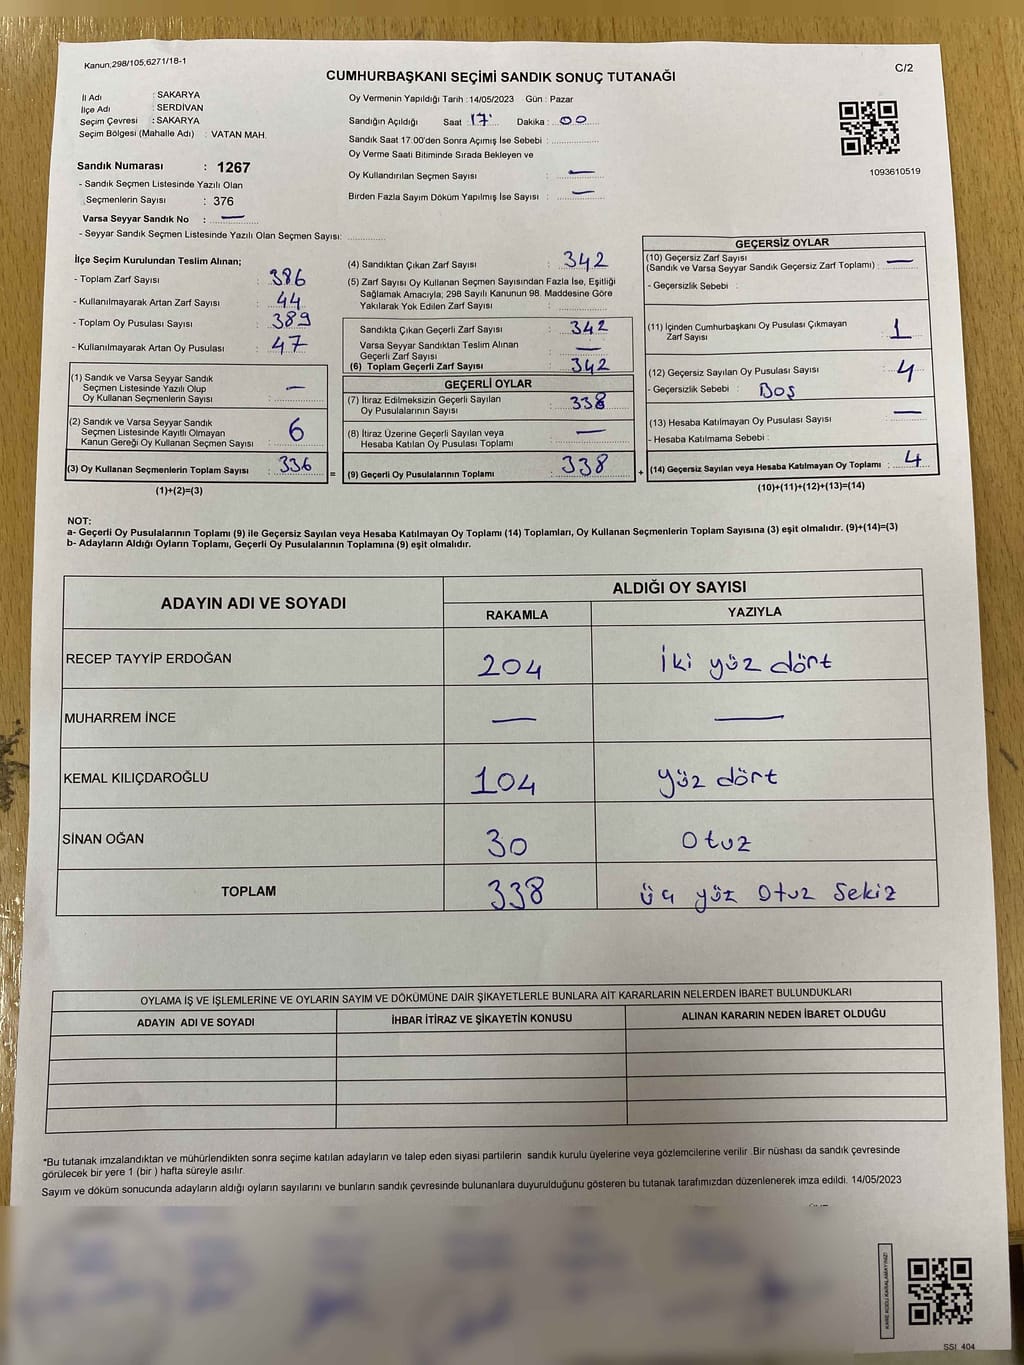 Kanun;298/105,6271/18-1
C/2
CUMHURBAŞKANI SEÇİMİ SANDIK SONUÇ TUTANAĞI
İl Adı : SAKARYA
İlçe Adı : SERDİVAN
Seçim Çevresi : SAKARYA
Seçim Bölgesi (Mahalle Adı) : VATAN MAH.
Sandık Numarası : 1267
- Sandık Seçmen Listesinde Yazılı Olan
Seçmenlerin Sayısı : 376
Varsa Seyyar Sandık No : —
- Seyyar Sandık Seçmen Listesinde Yazılı Olan Seçmen Sayısı: ............
Oy Vermenin Yapıldığı Tarih :14/05/2023 Gün : Pazar
Sandığın Açıldığı Saat 17 Dakika : 00
Sandık Saat 17:00'den Sonra Açımış İse Sebebi : ............
Oy Verme Saati Bitiminde Sırada Bekleyen ve
Oy Kullandırılan Seçmen Sayısı : —
Birden Fazla Sayım Döküm Yapılmış İse Sayısı : —
1093610519
İlçe Seçim Kurulundan Teslim Alınan;
- Toplam Zarf Sayısı : 386
- Kullanılmayarak Artan Zarf Sayısı : 44
- Toplam Oy Pusulası Sayısı : 389
- Kullanılmayarak Artan Oy Pusulası : 47
(1) Sandık ve Varsa Seyyar Sandık
Seçmen Listesinde Yazılı Olup
Oy Kullanan Seçmenlerin Sayısı : —
(2) Sandık ve Varsa Seyyar Sandık
Seçmen Listesinde Kayıtlı Olmayan
Kanun Gereği Oy Kullanan Seçmen Sayısı : 6
(3) Oy Kullanan Seçmenlerin Toplam Sayısı : 336
(1)+(2)=(3)
=
(4) Sandıktan Çıkan Zarf Sayısı : 342
(5) Zarf Sayısı Oy Kullanan Seçmen Sayısından Fazla İse, Eşitliği
Sağlamak Amacıyla; 298 Sayılı Kanunun 98. Maddesine Göre
Yakılarak Yok Edilen Zarf Sayısı : ............
Sandıkta Çıkan Geçerli Zarf Sayısı : 342
Varsa Seyyar Sandıktan Teslim Alınan
Geçerli Zarf Sayısı : —
(6) Toplam Geçerli Zarf Sayısı : 342
GEÇERLİ OYLAR
(7) İtiraz Edilmeksizin Geçerli Sayılan
Oy Pusulalarının Sayısı : 338
(8) İtiraz Üzerine Geçerli Sayılan veya
Hesaba Katılan Oy Pusulası Toplamı : —
(9) Geçerli Oy Pusulalarının Toplamı : 338
+
GEÇERSİZ OYLAR
(10) Geçersiz Zarf Sayısı
(Sandık ve Varsa Seyyar Sandık Geçersiz Zarf Toplamı) : —
- Geçersizlik Sebebi :
(11) İçinden Cumhurbaşkanı Oy Pusulası Çıkmayan
Zarf Sayısı : 1
(12) Geçersiz Sayılan Oy Pusulası Sayısı : 4
- Geçersizlik Sebebi : Boş
(13) Hesaba Katılmayan Oy Pusulası Sayısı : —
- Hesaba Katılmama Sebebi :
(14) Geçersiz Sayılan veya Hesaba Katılmayan Oy Toplamı : 4
(10)+(11)+(12)+(13)=(14)
NOT:
a- Geçerli Oy Pusulalarının Toplamı (9) ile Geçersiz Sayılan veya Hesaba Katılmayan Oy Toplamı (14) Toplamları, Oy Kullanan Seçmenlerin Toplam Sayısına (3) eşit olmalıdır. (9)+(14)=(3)
b- Adayların Aldığı Oyların Toplamı, Geçerli Oy Pusulalarının Toplamına (9) eşit olmalıdır.
ADAYIN ADI VE SOYADI ALDIĞI OY SAYISI
RAKAMLA YAZIYLA
RECEP TAYYİP ERDOĞAN 204 iki yüz dört
MUHARREM İNCE — —
KEMAL KILIÇDAROĞLU 104 yüz dört
SİNAN OĞAN 30 Otuz
TOPLAM 338 üç yüz Otuz Sekiz
OYLAMA İŞ VE İŞLEMLERİNE VE OYLARIN SAYIM VE DÖKÜMÜNE DAİR ŞİKAYETLERLE BUNLARA AİT KARARLARIN NELERDEN İBARET BULUNDUKLARI
ADAYIN ADI VE SOYADI İHBAR İTİRAZ VE ŞİKAYETİN KONUSU ALINAN KARARIN NEDEN İBARET OLDUĞU
*Bu tutanak imzalandıktan ve mühürlendikten sonra seçime katılan adayların ve talep eden siyasi partilerin sandık kurulu üyelerine veya gözlemcilerine verilir .Bir nüshası da sandık çevresinde
görülecek bir yere 1 (bir ) hafta süreyle asılır.
Sayım ve döküm sonucunda adayların aldığı oyların sayılarını ve bunların sandık çevresinde bulunanlara duyurulduğunu gösteren bu tutanak tarafımızdan düzenlenerek imza edildi. 14/05/2023
KARE KODU KARALAMAYINIZ!
SSI_404